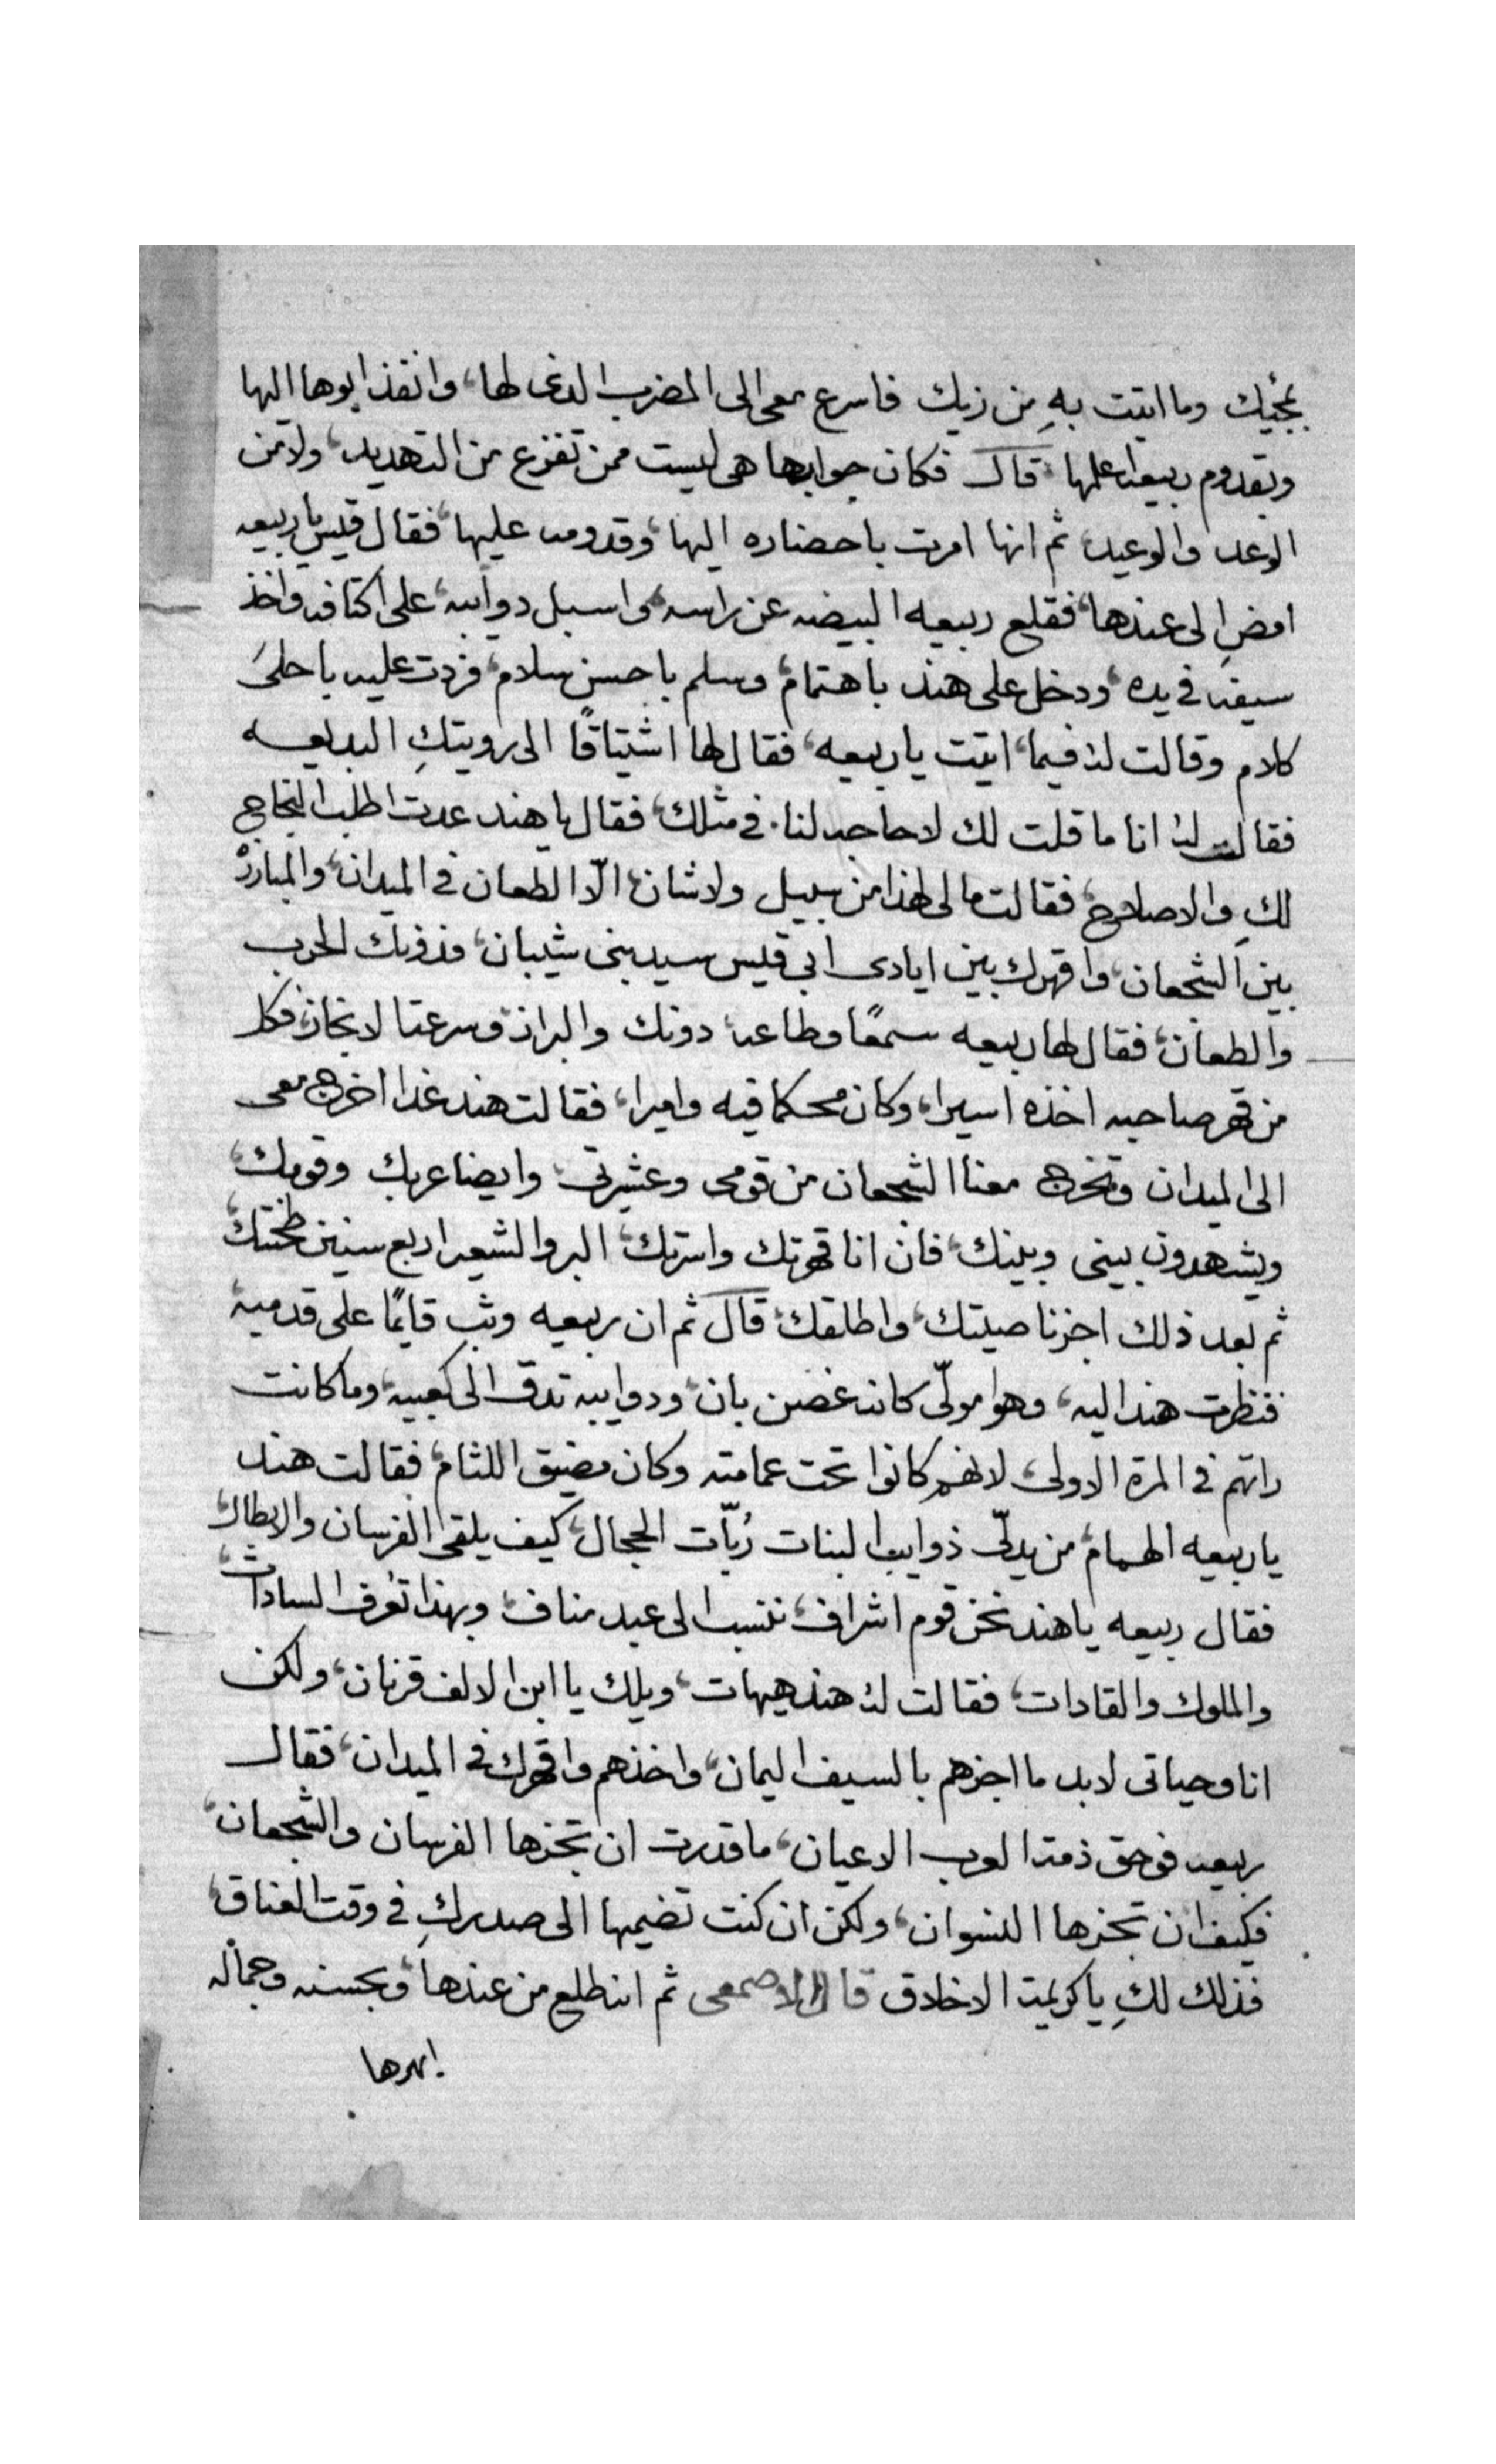 بمجيك وما اتيت بهِ من زيك فاسرع معى الى المضرب الدى لها، وانفذ ابوها اليها
وبقدوم ربيعه اعلمها، قال فكان جوابها هى ليست ممن تفزع من التهديد، ولا من
الوعد والوعيد، ثم انها امرت باحضاره اليها، وقدومه عليها، فقال قيس يا ربيعه
امضِ الى عندها، فقلع ربيعه البيضه عن راسه، واسبل دوآيبه، على اكتافه واخذ
سيفه فى يده، ودخل على هند باهتمام، وسلم باحسن سلام، فردت عليه باحلىَ
كلام وقالت لهُ فيما، اتيت يا ربيعه، فقال لها اشتياقًا الى رويتكِ البديعه
فقالت لهُ انا ما قلت لك لا حاجه لنا فى مثلك، فقال يا هند عدت اطلب النجاح
لكِ والاصلاح، فقالت ما لى لهذا من سبيل ولا شان، الّا الطعان فى الميدان، والمبارزْ
بين الشجعان، واقهرك بين ايادى ابى قيس سيد بنى شيبان، فدونك الحرب
والطعان، فقال لها ربيعه سمعًا وطاعه، دونك والبراز، وسرعتا لانجاز، فكل
من قهر صاحبه اخذه اسيرا، وكان محكما فيه واميرا، فقالت هند غدا اخرج معى
الى الميدان وتخرج معنا الشجعان من قومى وعشيرتى، وايضا عربك وقومك،
ويشهدون بينى وبينك، فان انا قهرتك واسرتك، البر والشعير اربع سنين طحنتك،
ثم بعد ذلك اجز ناصيتك، واطلقك، قال ثم ان ربيعه وثب قايمًا على قدميه،
فنظرت هند اليه، وهوا مولّى كانه غصن بان، ودوايبه تدق الى كعبيه، وما كانت
راتهم فى المرة الاولى، لانهم كانوا تحت عمامته وكان مضيق اللثام، فقالت هند
يا ربيعه الهمام، من يدلّى ذوايب البنات ربّات الحجال، كيف يلقى الفرسان والابطال،
فقال ربيعه يا هند نحن قوم اشراف، ننتسب الى عبد مناف، وبهذا تعرف السادات،
والملوك والقادات، فقالت لهُ هند هيهات، ويلك يا ابن الالف قرنان، ولكن
انا وحياتى لابد ما اجزهم بالسيف اليمان، واخذهم واقهرك فى الميدان، فقال
ربيعه فوحق ذمة العرب الاعيان، ما قدرت ان تجزها الفرسان والشجعان،
فكيف ان تجزها النسوان، ولكن ان كنت تضميها الى صدركِ فى وقت العناق،
فذلك لكِ يا كريمة الاخلاق قال الاصمعى ثم انه طلع من عندها، وبحسنه وجماله
ابهرها